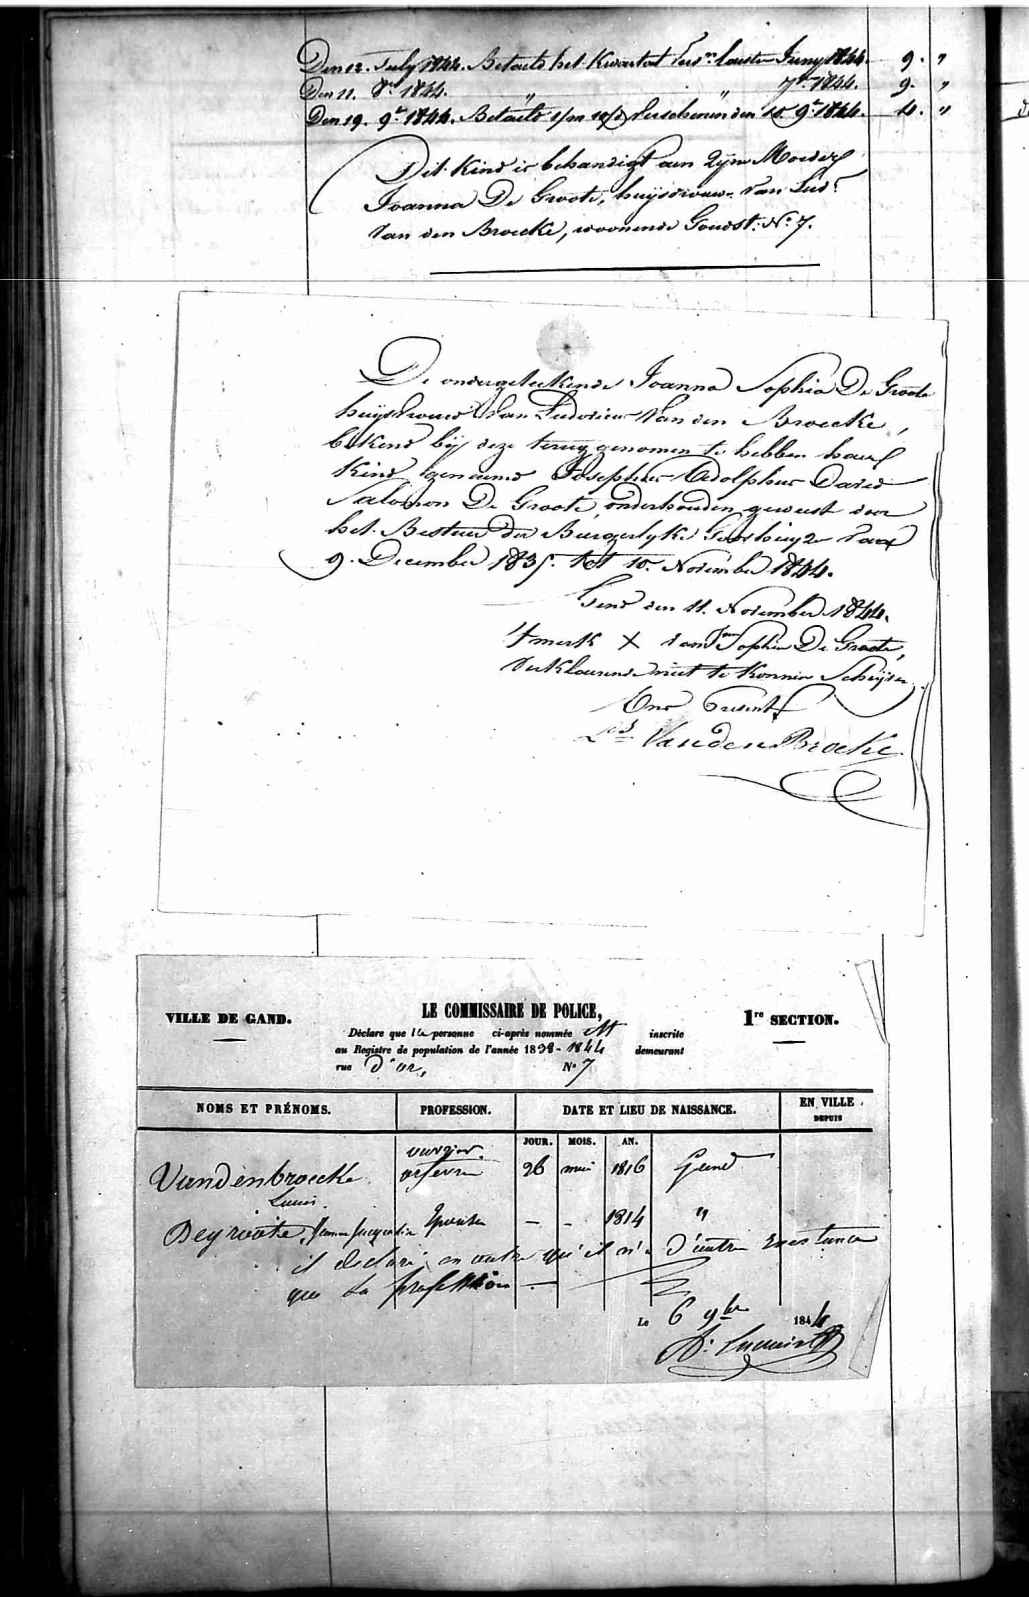 Den 12. July 1844. Betaeld het Kwartael Versn. laesten Juny 1844. 9. "
Den 11. 8br 1844. " " 7br 1844. 9. "
Den 19. 9br 1844. Betaeld 1/m 10/d verschenen den 10 9br 1844. 4. "
Dit Kind is behandigt aen Zyne Moeder
Joanna De Groote, huysvrouw van Lud.
Van den Broecke, woonende Goudst: No 7.
De ondergeteekende Joanna Sophia De Groote
huysvrouw van Ludovicus Van den Broecke,
bekend by deze terug genomen te hebben haer
Kind genaemd Josephus Adolphus David
Salomon De Groote, onderhouden geweest door
het Bestuer der Burgerlyke Godshuyzen van
9. December 1835. tot 10. November 1844.
Gend den 11. November 1844.
't merk X van Joa Sophia De Groote,
verklaerende niet te konnen Schryven.
Ons Present
Ls Vanden Brocke
VILLE DE GAND.
LE COMMISSAIRE DE POLICE,
1re SECTION.
Déclare que la personne ci-après nommée inscrite
au Registre de population de l'année 1838-1844 demeurant
rue d'or, No 7
NOMS ET PRÉNOMS. PROFESSION. DATE ET LIEU DE NAISSANCE. EN VILLE DEPUIS
JOUR. MOIS. AN.
Vandenbroecke orfevre 26 mai 1816 Gand
Louis
Degroote, Epouse - - 1814 "
il declare en outre qu'il n'a d'autre existance
que sa profession
Le 6 9bre 1844